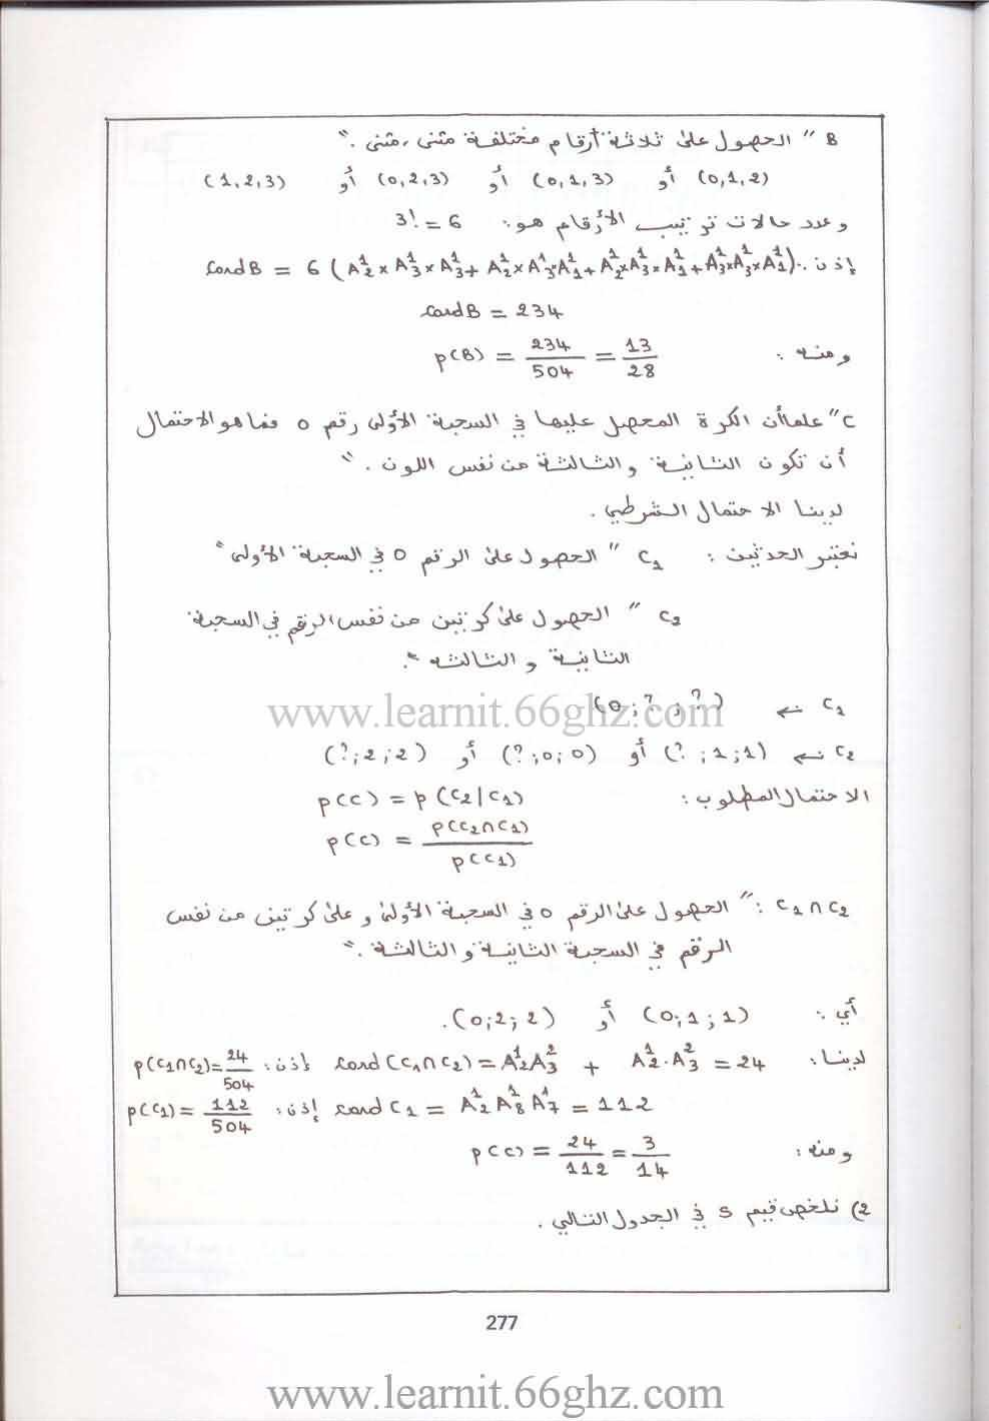 B " الحصول على ثلاثة أرقام مختلفة مثنى، مثنى ."
(0,1,2) أو (0,1,3) أو (0,2,3) أو (1,2,3)
وعدد حالات ترتيب الأرقام هو: 3! = 6
إذن: cardB = 6 (A¹₂ × A¹₃ × A¹₃ + A¹₂ × A¹₃ × A¹₁ + A¹₂ × A¹₃ × A¹₁ + A¹₃ × A¹₃ × A¹₁)
cardB = 234
ومنه: p(B) = 234/504 = 13/28
C " علما أن الكرة المحصل عليها في السحبة الأولى رقم 0 فما هو الاحتمال
أن تكون الثانية والثالثة من نفس اللون . "
لدينا الاحتمال الشرطي .
نعتبر الحدثين : C₁ " الحصول على الرقم 0 في السحبة الأولى "
C₂ " الحصول على كرتين من نفس الرقم في السحبة
الثانية والثالثة ".
C₁ ← (0 ; ? ; ?)
C₂ ← (? ; 1 ; 1) أو (? ; 0 ; 0) أو (? ; 2 ; 2)
الاحتمال المطلوب : p(C) = p(C₂|C₁)
p(C) = p(C₂∩C₁)/p(C₁)
C₁∩C₂ : " الحصول على الرقم 0 في السحبة الأولى وعلى كرتين من نفس
الرقم في السحبة الثانية والثالثة . "
أي : (0 ; 1 ; 1) أو (0 ; 2 ; 2).
لدينا : card(C₁∩C₂) = A¹₂A²₃ + A¹₂.A²₃ = 24 إذن : p(C₁∩C₂) = 24/504
card C₁ = A¹₂ A¹₈ A¹₇ = 112 إذن : p(C₁) = 112/504
ومنه : p(C) = 24/112 = 3/14
2) نلخص قيم S في الجدول التالي .
277
www.learnit.66ghz.com
www.learnit.66ghz.com